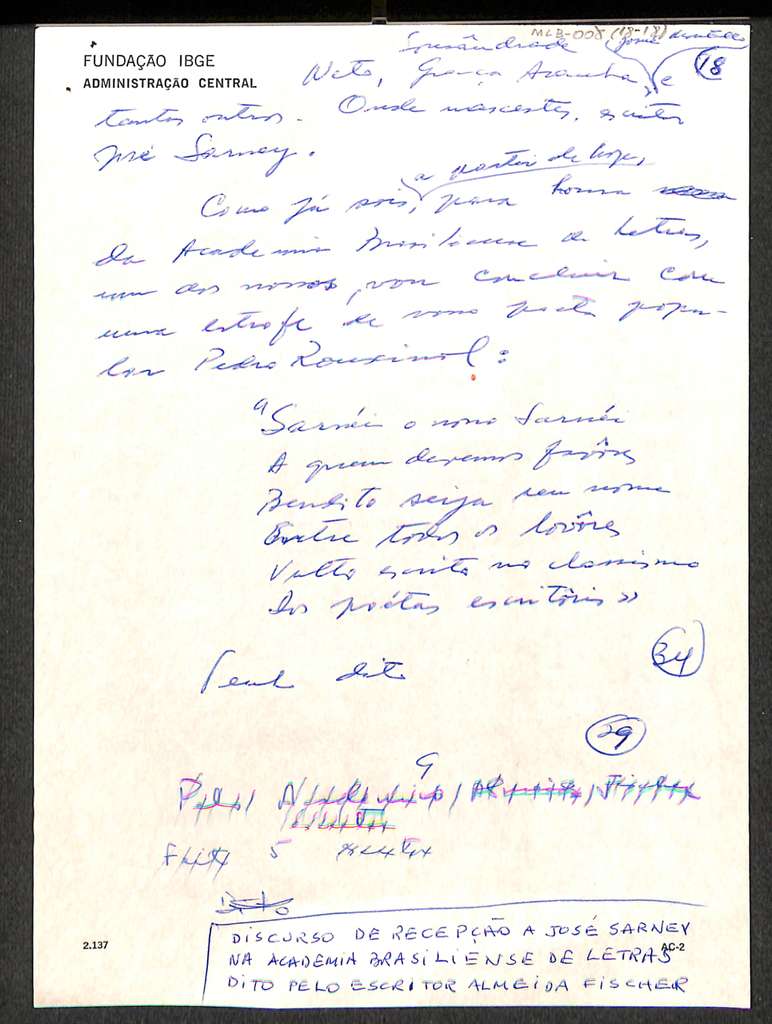 MLB-008 (18-18)
18
FUNDAÇÃO IBGE
ADMINISTRAÇÃO CENTRAL
Sousândrade
Neto, Graça Aranha e
tantos outros. Onde nascestes, escritor
José Sarney.
a partir de hoje,
Como já sois, para honra
da Academia Brasiliense de Letras,
um dos nossos, vou concluir com
uma estrofe de vosso poeta popu-
lar Pedro Rouxinol:
"Sarnéi o nono Sarnéi
A quem devemos favôres
Bendito seija seu nome
Entre todos os lovôres
Vulto escrito no classismo
Dos poétas escritôris"
Tenho dito
34
29
9
5
DISCURSO DE RECEPÇÃO A JOSÉ SARNEY
NA ACADEMIA BRASILIENSE DE LETRAS
DITO PELO ESCRITOR ALMEIDA FISCHER
2.137
AC-2